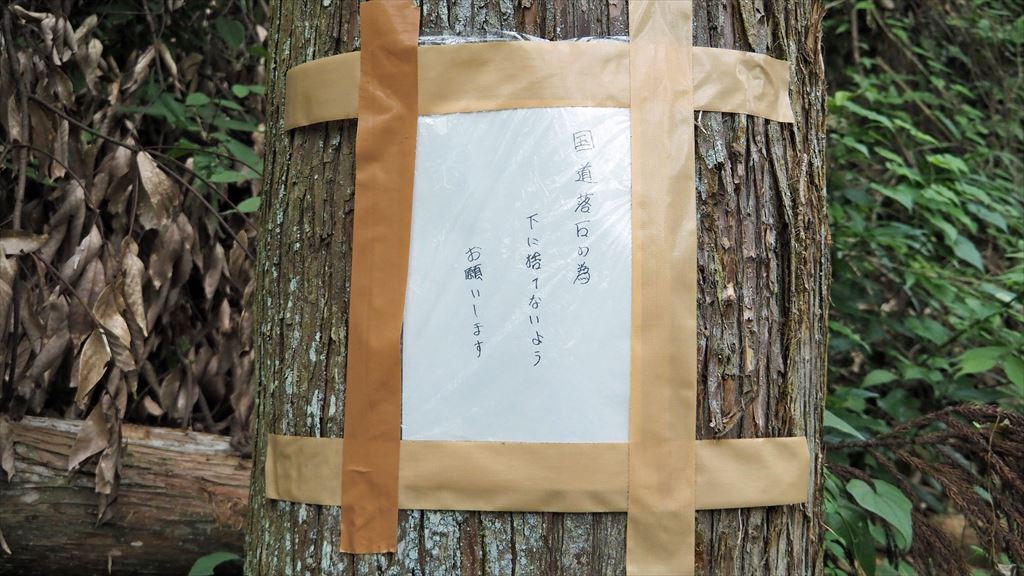 国道落石の為
下に捨てないよう
お願いします